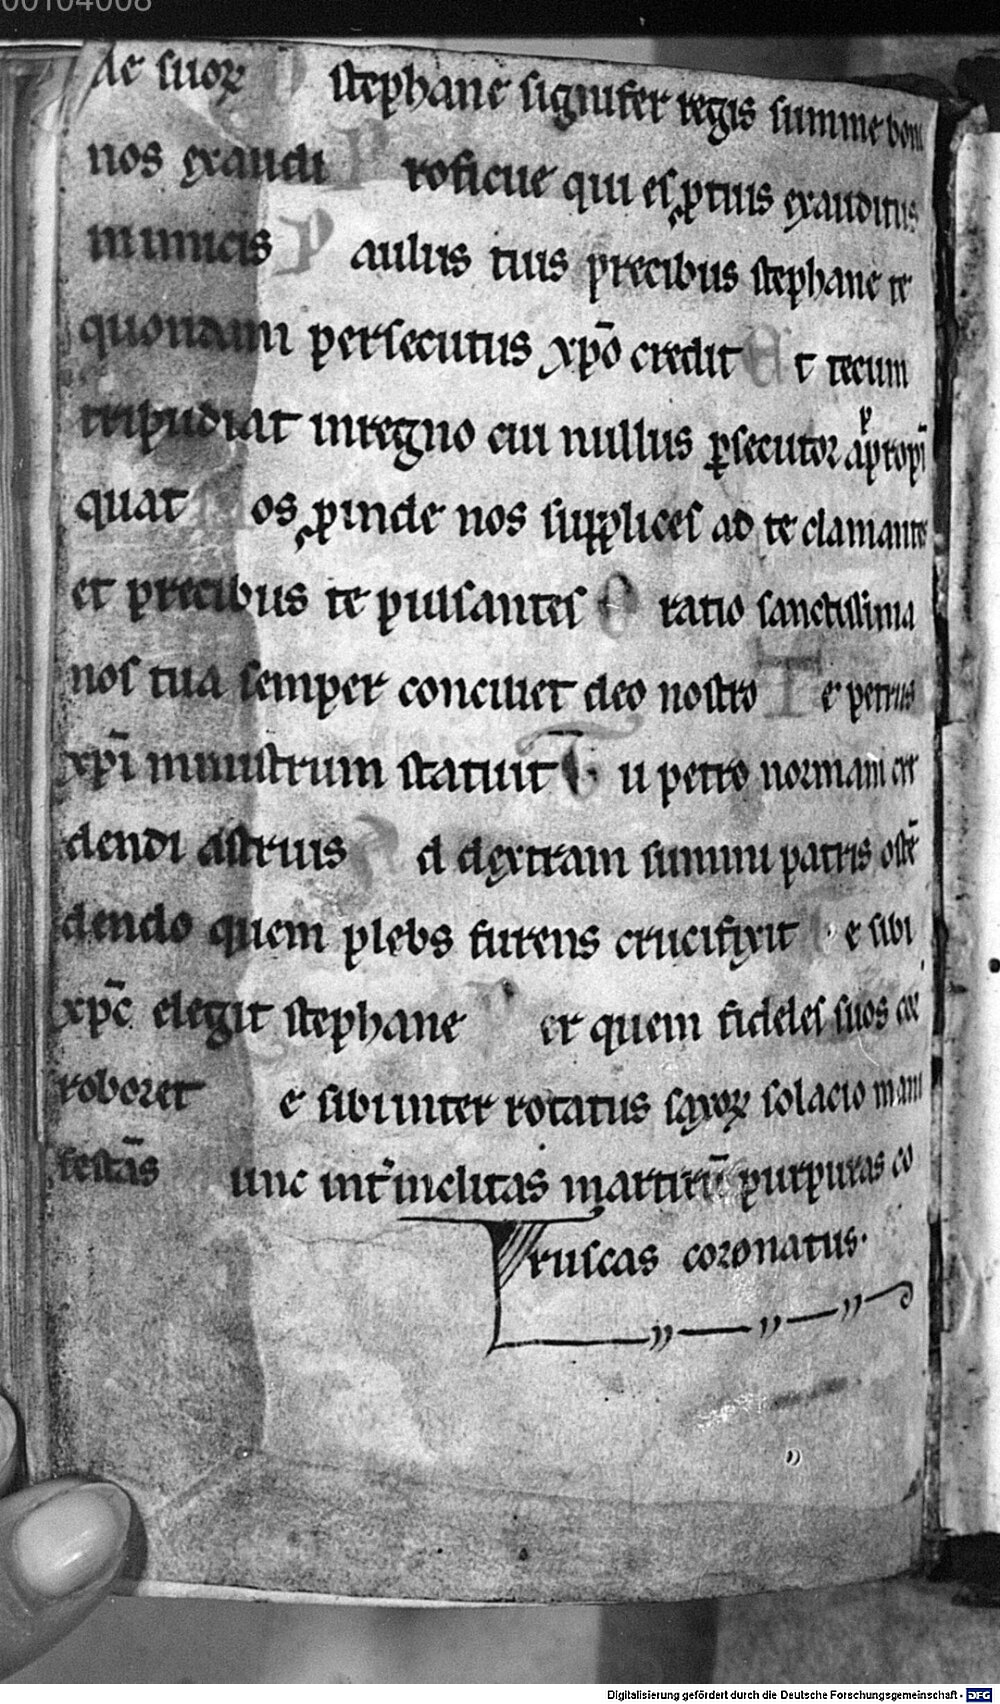 00104008
de suoꝝ stephane signifer regis summe bon
nos exaudi P roficue qui es ꝓ tuis exauditus
inimicis P aulus tuis precibus stephane te
quondam persecutus xpō credit E t tecum
tripudiat in regno cui nullus ꝑsecutor apropī
quat N os ꝓinde nos supplices ad te clamantes
et precibus te pulsantes O ratio sanctissima
nos tua semper conciliet deo nostro T e petrus
xpī ministrum statuit T u petro normam cre
dendi astruis A d dextram summi patris ostē
dendo quem plebs furens crucifixit e sibi
xpc̄ elegit stephane P er quem fideles suos cor
roboret e sibi inter rotatus saxoꝝ solacio mani
festās unc int̄ inclitas martirū purpuras co
ruscas coronatus.
Digitalisierung gefördert durch die Deutsche Forschungsgemeinschaft - DFG